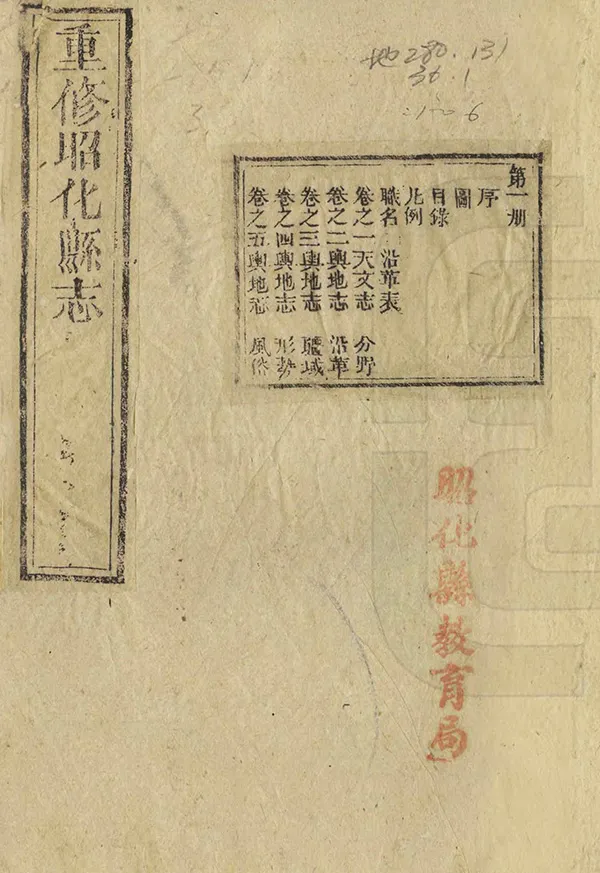 重修昭化縣志
地280.131
36.1
:1-6
第一册
序
圖
目錄
凡例
職名 沿革表
卷之一天文志 分野
卷之二輿地志 沿革
卷之三輿地志 疆域
卷之四輿地志 形勢
卷之五輿地志 風俗
昭化縣教育局